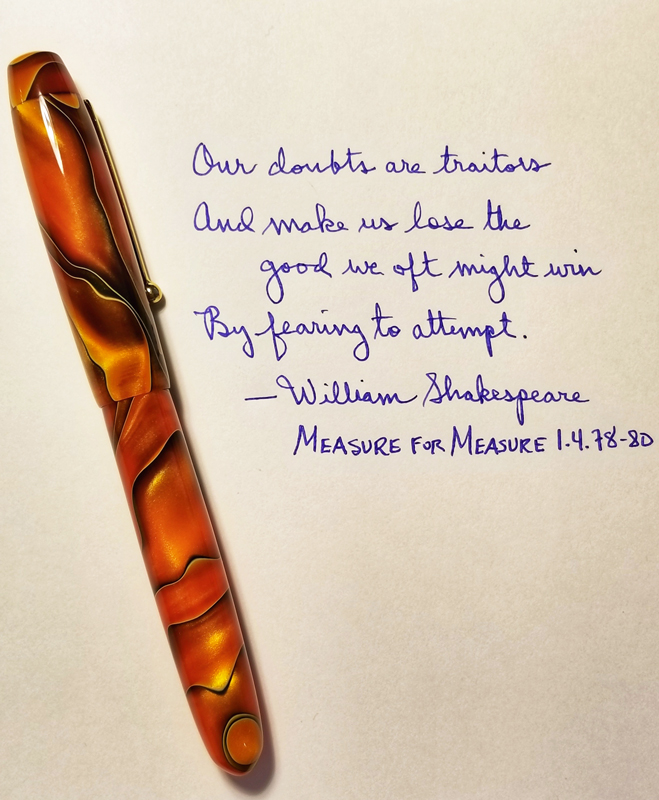 Our doubts are traitors
And make us lose the
good we oft might win
By fearing to attempt.
—William Shakespeare
MEASURE FOR MEASURE 1.4.78-80